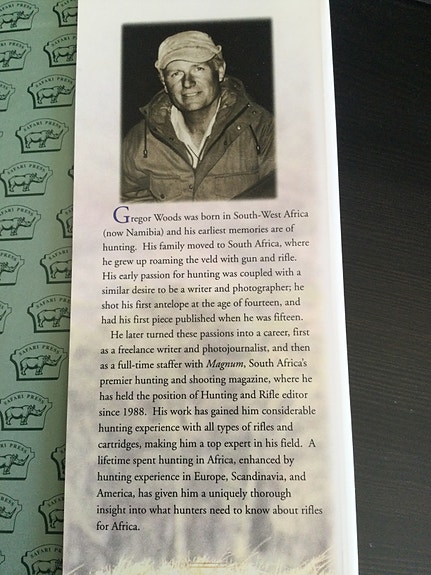 SAFARI PRESS
Gregor Woods was born in South-West Africa
(now Namibia) and his earliest memories are of
hunting. His family moved to South Africa, where
he grew up roaming the veld with gun and rifle.
His early passion for hunting was coupled with a
similar desire to be a writer and photographer; he
shot his first antelope at the age of fourteen, and
had his first piece published when he was fifteen.
He later turned these passions into a career, first
as a freelance writer and photojournalist, and then
as a full-time staffer with Magnum, South Africa's
premier hunting and shooting magazine, where he
has held the position of Hunting and Rifle editor
since 1988. His work has gained him considerable
hunting experience with all types of rifles and
cartridges, making him a top expert in his field. A
lifetime spent hunting in Africa, enhanced by
hunting experience in Europe, Scandinavia, and
America, has given him a uniquely thorough
insight into what hunters need to know about rifles
for Africa.